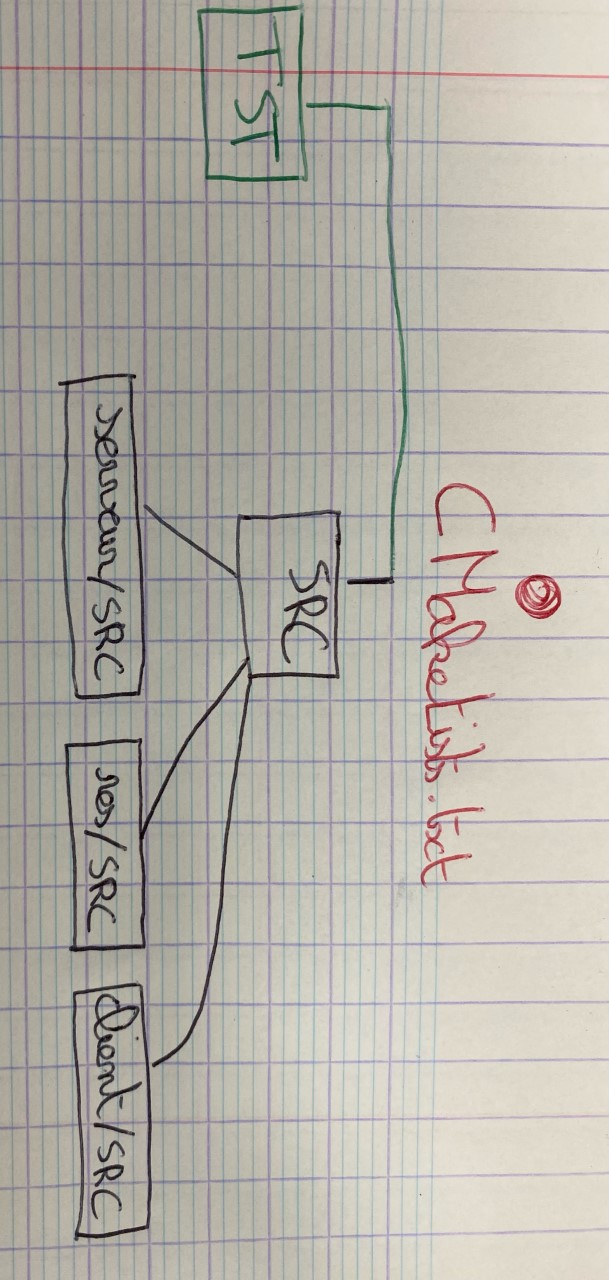 CMakeLists.txt
TST
SRC
serveur/SRC
res/SRC
client/SRC